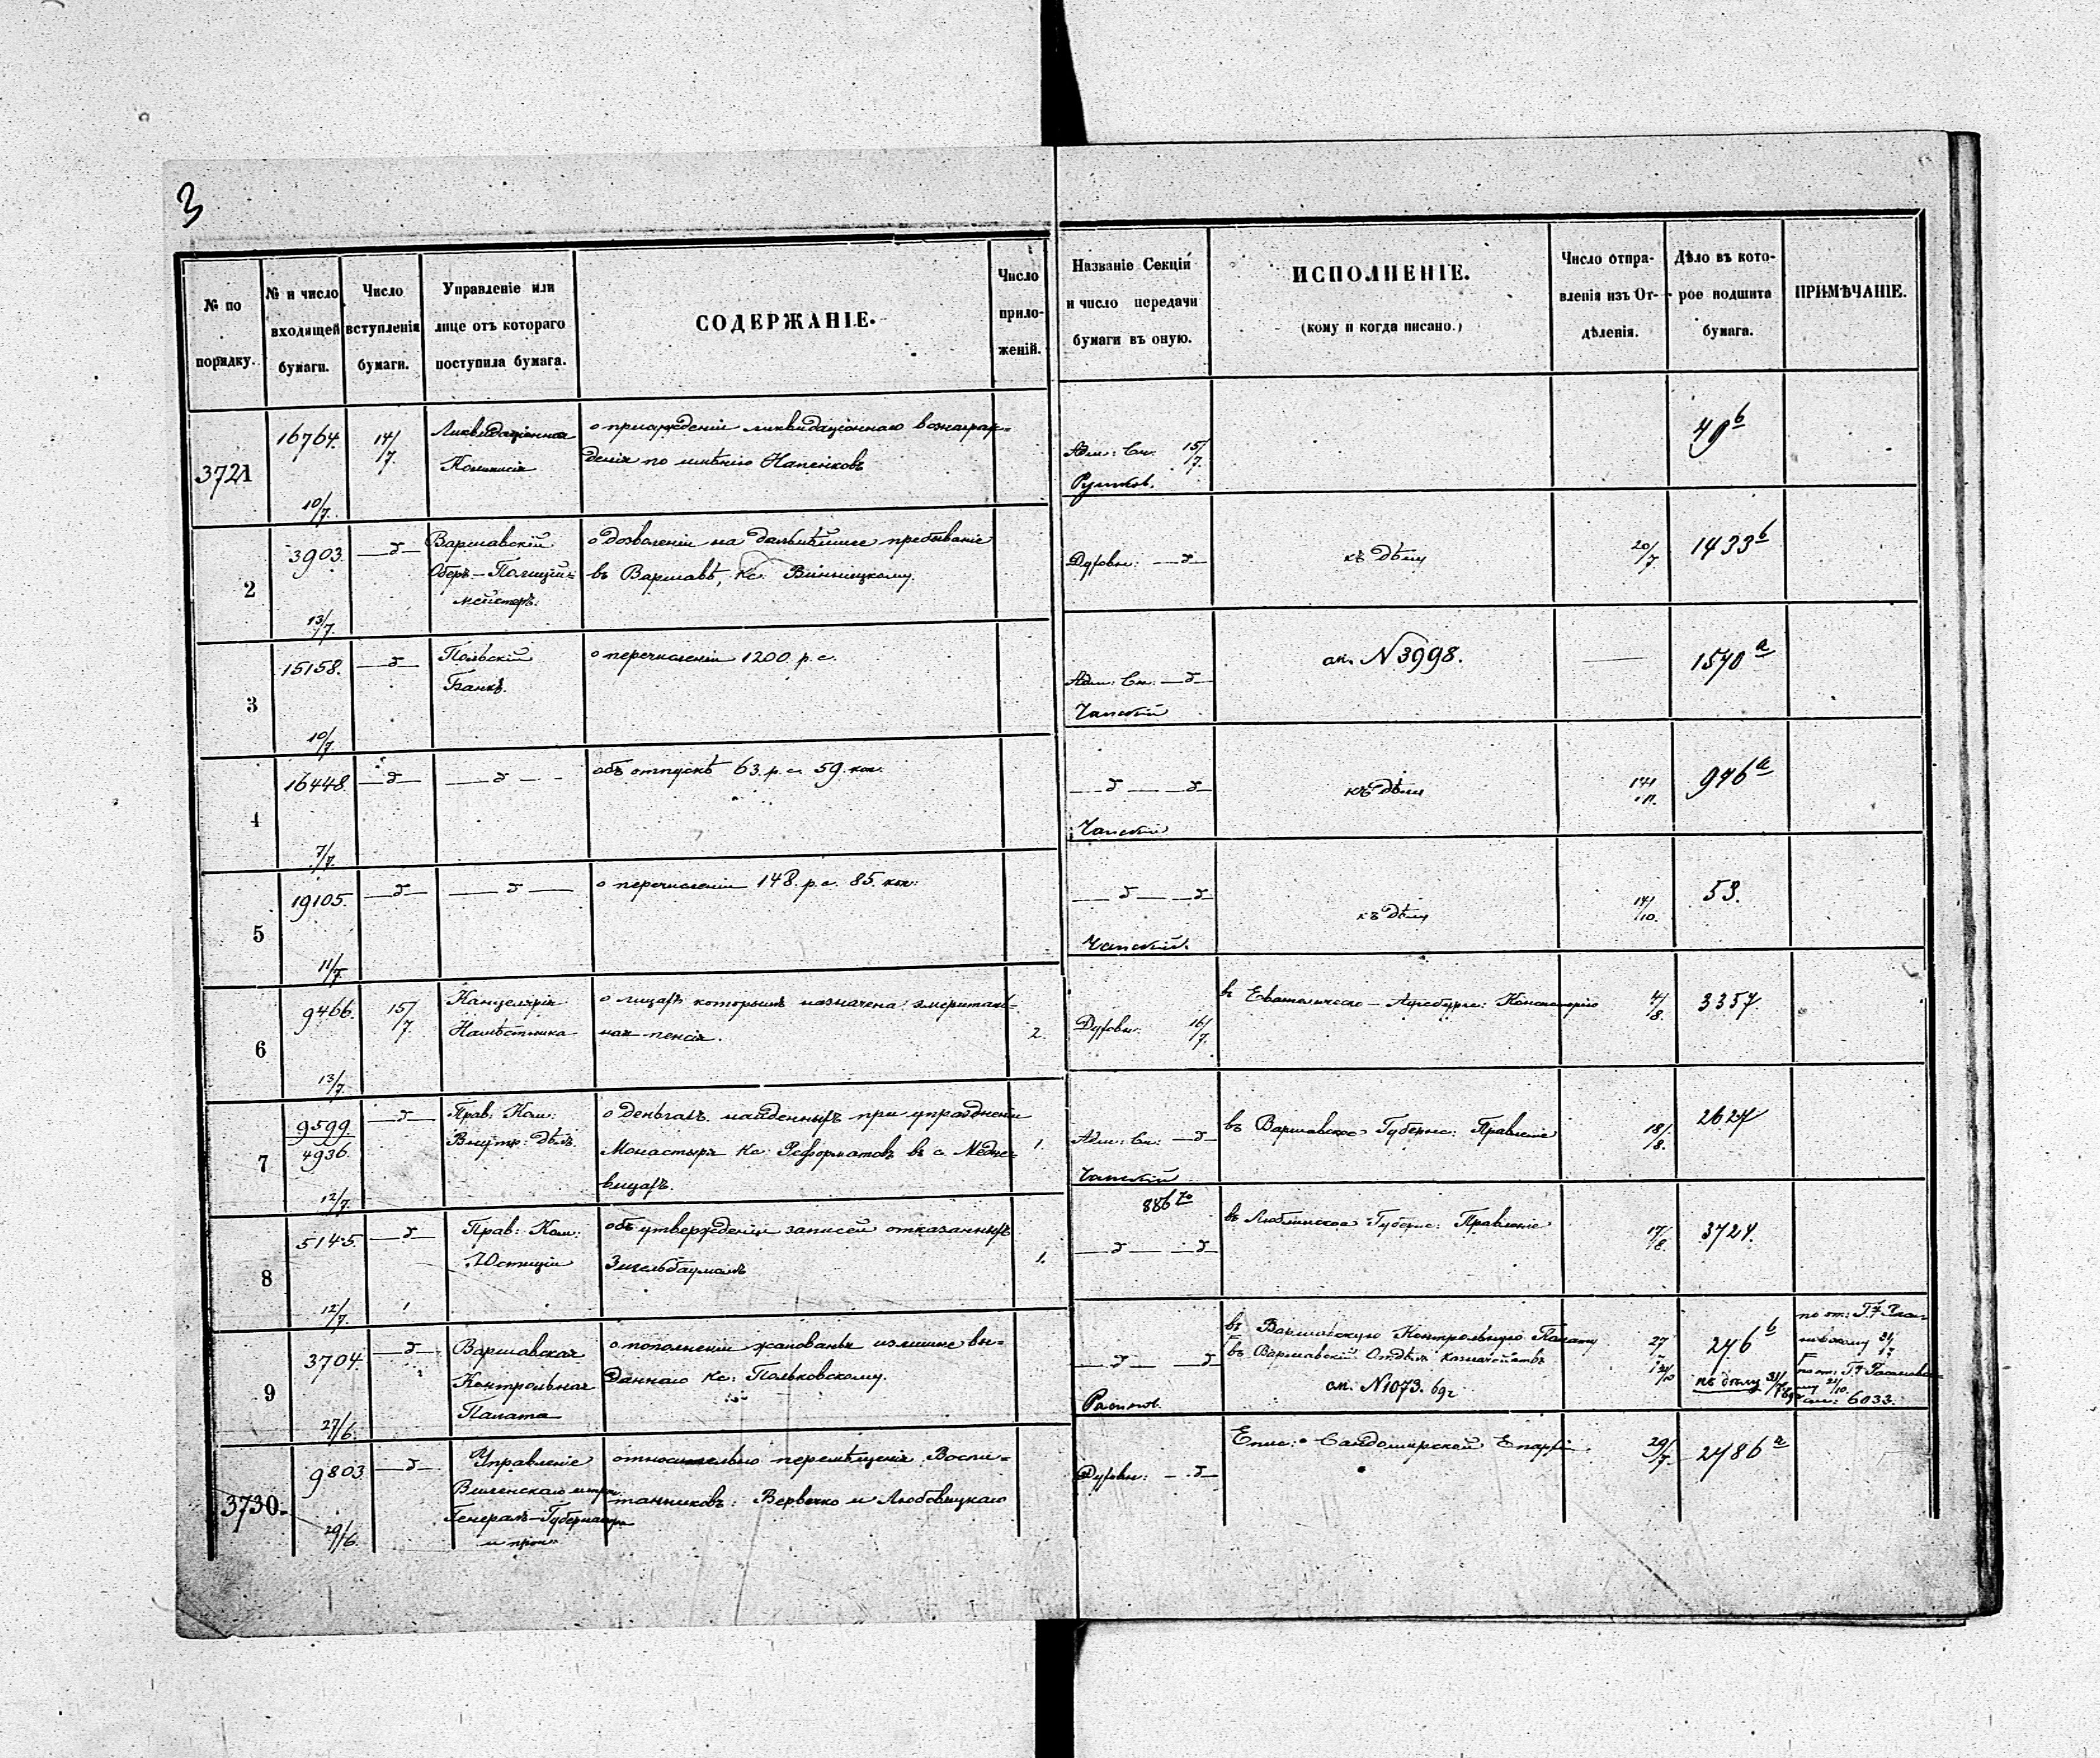 3
№ по порядку.
№ и число входящей бумаги.
Число вступленія бумаги.
Управленіе или лице отъ котораго поступила бумага.
СОДЕРЖАНІЕ.
Число прило- женій.
Названіе Секціи и число передачи бумаги въ оную.
ИСПОЛНЕНІЕ.
(кому и когда писано.)
Число отпра- вленія изъ От- дѣленія.
Дѣло въ кото- рое подшита бумага.
ПРИМѢЧАНІЕ.
3721
16764.
10/7.
14/7.
Ликвидаціонная
Коммисія
о присужденіи ликвидаціоннаго вознаграж=
денія по имѣнію
Адм: Ск: 15/7.
49 b
2
3903.
13/7.
—д—
Варшавскій
Оберъ-Полиціи=
мейстеръ.
о дозволеніи на дальнѣйшее пребываніе
въ Варшавѣ, Кс: Винницкому.
Духовн: —д—
къ дѣлу
20/7.
1433 b
3
15158.
10/7.
—д—
Польскій
Банкъ.
о перечисленіи 1200 р. с.
Адм: Ск: —д—
Чапскій
ак. N 3998.
1540 a
4
16448
7/7.
—д—
—д—
объ отпускѣ 63. р. с. 59. коп.
—д— —д—
Чапскій
къ дѣлу
946 a
5
19105.
11/7.
—д—
—д—
о перечисленіи 148. р. с. 85. коп:
—д— —д—
Чапскій.
къ дѣлу
14/10.
53.
6
9466.
13/7.
15/7.
Канцелярія
Намѣстника
о лицахъ которымъ назначена эмериталь=
ная пенсія.
2.
Духовн: 16/7.
въ Евангелическо-Аугсбургс: Консисторію
4/8.
3357.
7
9599.
4936.
12/7.
—д—
Прав: Ком:
Внутр: Дѣлъ.
о деньгахъ найденныхъ при упраздненіи
Монастыря Кс: Реформатовъ въ с. Медне=
вицахъ.
1.
Адм: Ск: —д—
Чапскій
въ Варшавское Губернс: Правленіе
18/8.
2624
8
5145.
12/7.
—д—
Прав: Ком:
Юстиціи
объ утвержденіи записей отказанныхъ
Зигельбаумомъ
1.
886
—д— —д—
въ Люблинское Губернс: Правленіе
17/8.
3724.
9
3704.
27/6.
—д—
Варшавская
Контрольная
Палата
о пополненіи жалованья излишне вы=
даннаго Кс: Польковскому.
—д— —д
въ Варшавскую Контрольную Палату
въ Варшавскій Отдѣлъ Казначействъ
ак. N 1073. 69 г
27
246 b
къ дѣлу
6033.
3730.
9803.
29/6.
—д—
Управленіе
Виленскаго
Генералъ-Губернатора
и проч:
относительно перемѣщенія Воспи=
танниковъ: Вервечко и Любовицкаго
Духовн: —д—
Епис: Сандомирской Епархіи
29/7.
2486 a